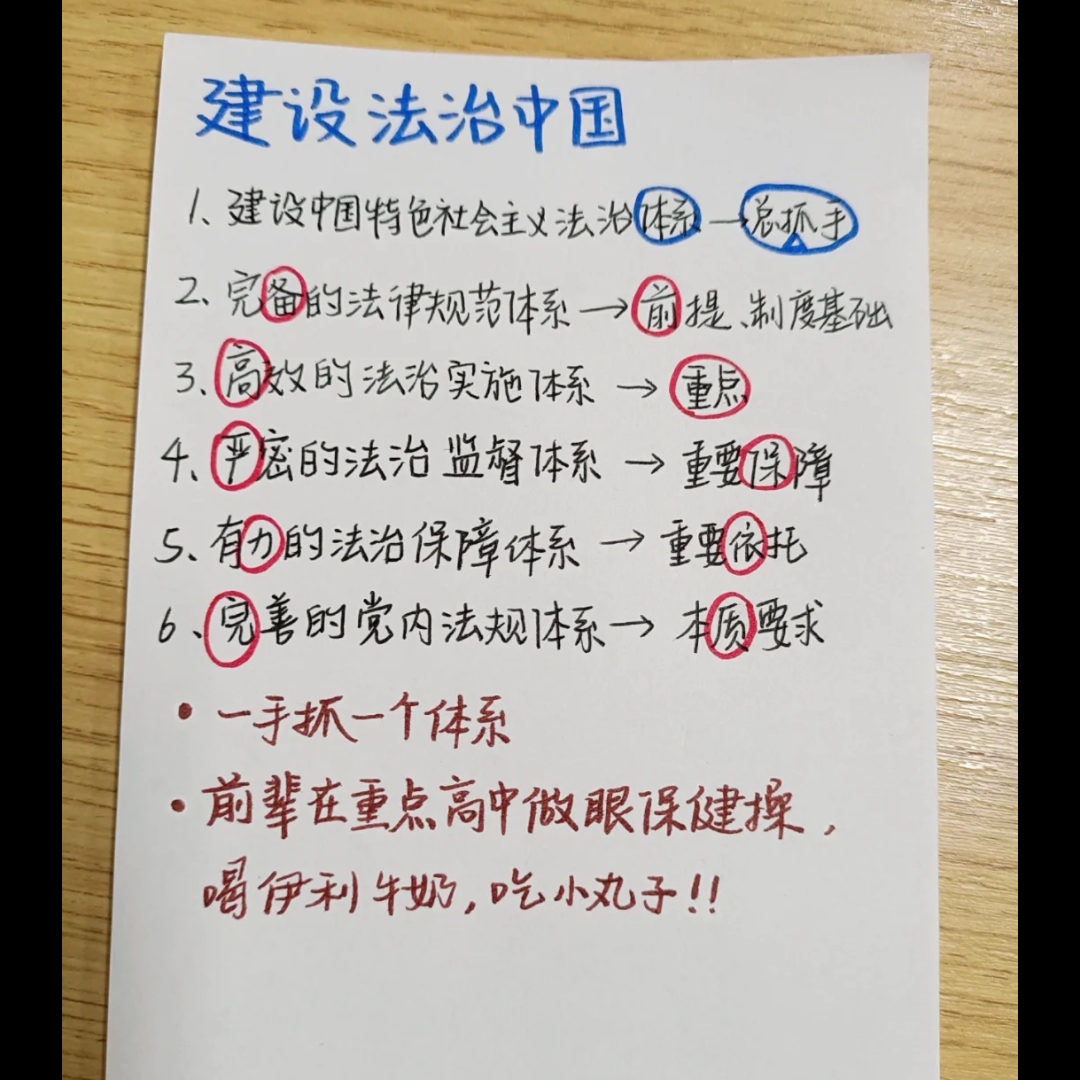 建设法治中国
1、建设中国特色社会主义法治体系→总抓手
2、完备的法律规范体系→前提、制度基础
3、高效的法治实施体系→重点
4、严密的法治监督体系→重要保障
5、有力的法治保障体系→重要依托
6、完善的党内法规体系→本质要求
•一手抓一个体系
•前辈在重点高中做眼保健操，
喝伊利牛奶,吃小丸子!!